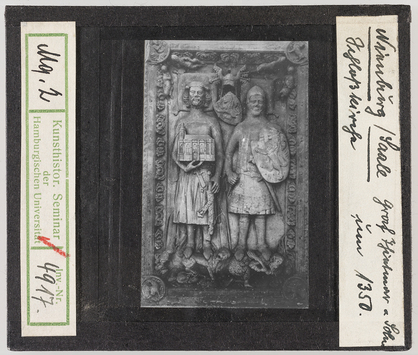 Mg. 2
Kunsthistor. Seminar
der
Hamburgischen Universität
Inv.-Nr.
4917.
Nienburg / Saale
Schloßkirche
Graf Thietmar u. Sohn
um 1350.